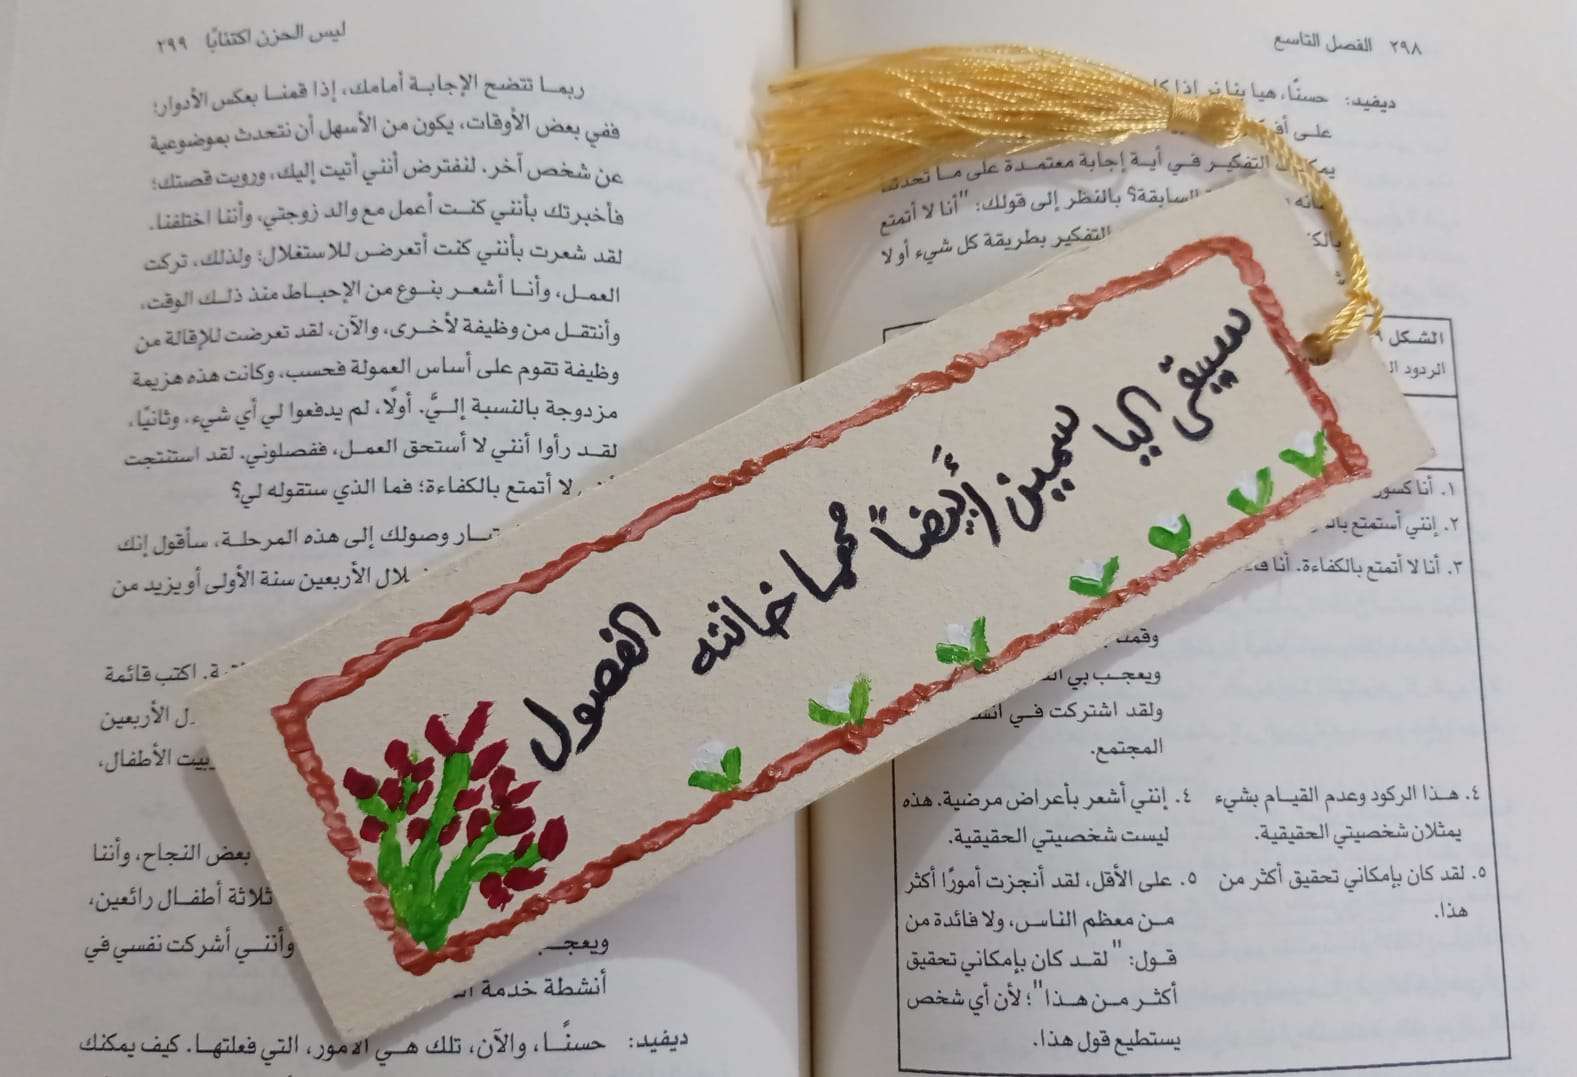 ٢٩٨ الفصل التاسع
ديفيد: حسنًا، هيا بنا نر إذا
على
التفكير في أية إجابة معتمدة على ما
السابقة؟ بالنظر إلى قولك: "أنا لا أتمتع
التفكير بطريقة كل شيء أو لا
الشكل
الردود
١. أنا
٢. إنني أستمتع
٣. أنا لا أتمتع بالكفاءة. أنا
ويعجب بي
ولقد اشتركت في
المجتمع.
٤. هذا الركود وعدم القيام بشيء يمثلان شخصيتي الحقيقية.
٤. إنني أشعر بأعراض مرضية. هذه ليست شخصيتي الحقيقية.
٥. لقد كان بإمكاني تحقيق أكثر من هذا.
٥. على الأقل، لقد أنجزت أمورًا أكثر
من معظم الناس، ولا فائدة من
قول: "لقد كان بإمكاني تحقيق
أكثر من هذا"؛ لأن أي شخص
يستطيع قول هذا.
سيبقى الياسمين أبيضاً مهما خانته الفصول
ليس الحزن اكتئابًا ٢٩٩
ربما تتضح الإجابة أمامك، إذا قمنا بعكس الأدوار؛
ففي بعض الأوقات، يكون من الأسهل أن نتحدث بموضوعية
عن شخص آخر. لنفترض أنني أتيت إليك، ورويت قصتك؛
فأخبرتك بأنني كنت أعمل مع والد زوجتي، وأننا اختلفنا.
لقد شعرت بأنني كنت أتعرض للاستغلال؛ ولذلك، تركت
العمل، وأنا أشعر بنوع من الإحباط منذ ذلك الوقت،
وأنتقل من وظيفة لأخرى، والآن، لقد تعرضت للإقالة من
وظيفة تقوم على أساس العمولة فحسب، وكانت هذه هزيمة
مزدوجة بالنسبة إليَّ. أولًا، لم يدفعوا لي أي شيء، وثانيًا،
لقد رأوا أنني لا أستحق العمل، ففصلوني. لقد استنتجت
لا أتمتع بالكفاءة؛ فما الذي ستقوله لي؟
وصولك إلى هذه المرحلة، سأقول إنك
الأربعين سنة الأولى أو يزيد من
اكتب قائمة
الأربعين
الأطفال،
بعض النجاح، وأننا
ثلاثة أطفال رائعين،
وأنني أشركت نفسي في
أنشطة خدمة
ديفيد: حسنًا، والآن، تلك هي الأمور، التي فعلتها. كيف يمكنك